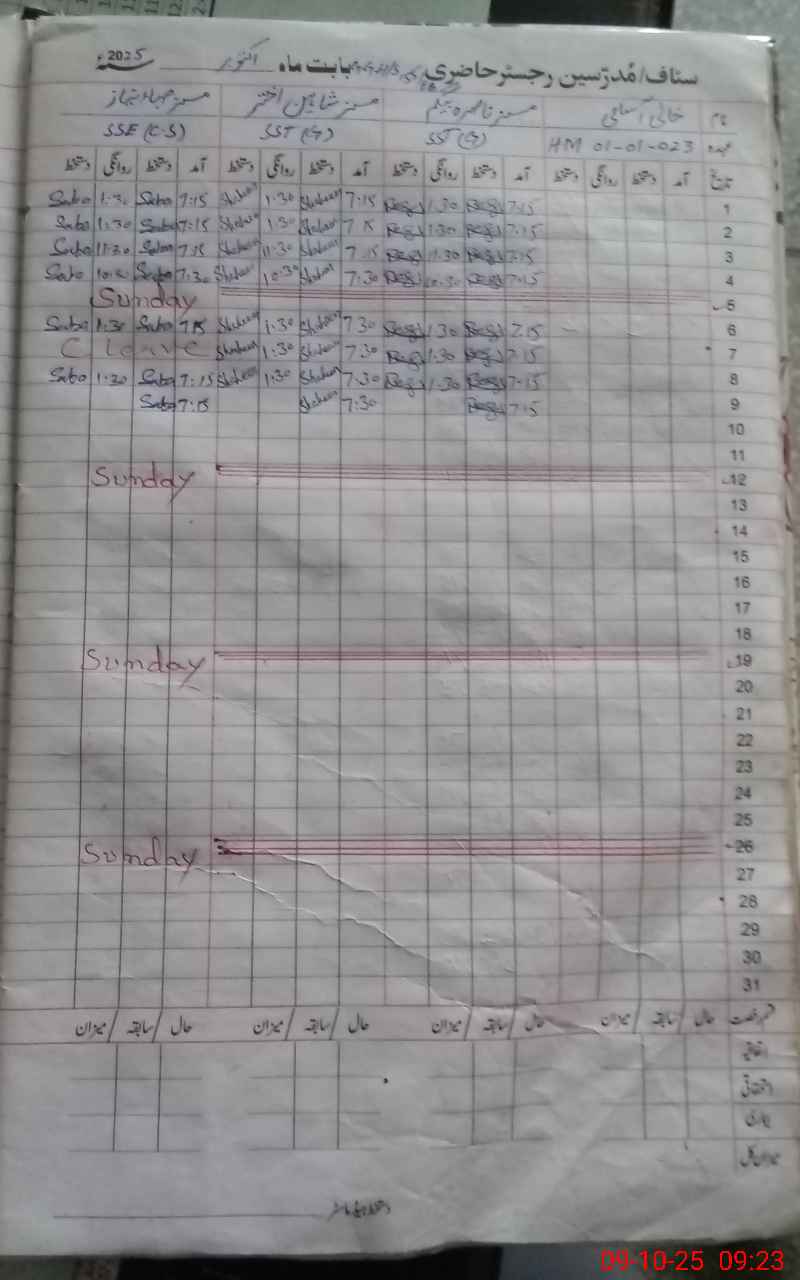 سٹاف/مُدرّسین رجسٹر حاضری بابت ماہ اکتوبر سنہ 2025ء
نام خالی آسامی مسز ناصرہ بیگم مسز شاہین اختر مسز
عہدہ HM 01-01-023 SST (G) SST (G) SSE (C.S)
تاریخ آمد دستخط روانگی دستخط آمد دستخط روانگی دستخط آمد دستخط روانگی دستخط آمد دستخط روانگی دستخط
1 7:15 1:30 7:15 Shaheen 1:30 Shaheen 7:15 Saba 1:30 Saba
2 7:15 1:30 7:15 Shaheen 1:30 Shaheen 7:15 Saba 1:30 Saba
3 7:15 11:30 7:15 Shaheen 11:30 Shaheen 7:15 Saba 11:30 Saba
4 7:15 10:30 7:30 Shaheen 10:30 Shaheen 7:30 Saba 10:30 Saba
5 Sunday
6 7:15 1:30 7:30 Shaheen 1:30 Shaheen 7:15 Saba 1:30 Saba
7 7:15 1:30 7:30 Shaheen 1:30 Shaheen C leave
8 7:15 1:30 7:30 Shaheen 1:30 Shaheen 7:15 Saba 1:30 Saba
9 7:15 7:30 Shaheen 7:15 Saba
10
11
12 Sunday
13
14
15
16
17
18
19 Sunday
20
21
22
23
24
25
26 Sunday
27
28
29
30
31
قسم رخصت حال / سابقہ / میزان حال / سابقہ / میزان حال / سابقہ / میزان حال / سابقہ / میزان
اتفاقیہ
استحقاقی
بیماری
میزان کل
دستخط ہیڈ ماسٹر
09-10-25 09:23